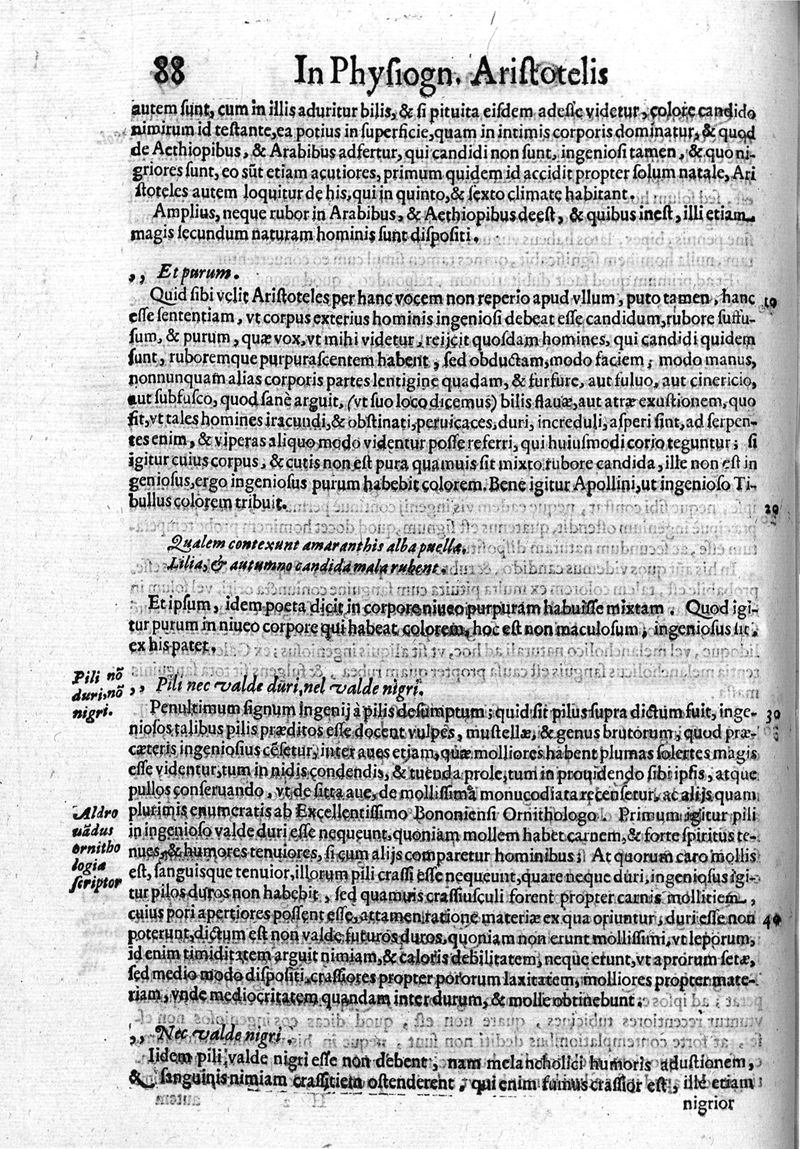 88 In Physiogn. Aristotelis
autem sunt, cum in illis aduritur bilis, & si pituita eisdem adesse videtur, colore candido
nimirum id testante, ea potius in superficie, quam in intimis corporis dominatur, & quod
de Aethiopibus, & Arabibus adfertur, qui candidi non sunt, ingeniosi tamen, & quo ni-
griores sunt, eo sũt etiam acutiores, primum quidem id accidit propter solum natale, Ari
stoteles autem loquitur de his, qui in quinto, & sexto climate habitant.
Amplius, neque rubor in Arabibus, & Aethiopibus deest, & quibus inest, illi etiam
magis secundum naturam hominis sunt dispositi.
,, Et purum.
Quid sibi velit Aristoteles per hanc vocem non reperio apud vllum, puto tamen, hanc 10
esse sententiam, vt corpus exterius hominis ingeniosi debeat esse candidum, rubore suffu-
sum, & purum, quæ vox, vt mihi videtur, reijcit quosdam homines, qui candidi quidem
sunt, ruboremque purpurascentem habent, sed obductam, modo faciem, modo manus,
nonnunquam alias corporis partes lentigine quadam, & furfure, aut fuluo, aut cinericio,
aut subfusco, quod sanè arguit, (vt suo loco dicemus) bilis flauæ, aut atræ exustionem, quo
fit, vt tales homines iracundi, & obstinati, peruicaces, duri, increduli, asperi sint, ad serpen-
tes enim, & viperas aliquo modo videntur posse referri, qui huiusmodi corio teguntur; si
igitur cuius corpus, & cutis non est pura quamuis sit mixto rubore candida, ille non est in
geniosus, ergo ingeniosus purum habebit colorem. Bene igitur Apollini, ut ingenioso Ti-
bullus colorem tribuit. 20
Qualem contexunt amaranthis alba puella.
Lilia, & autumno candida mala rubent.
Et ipsum, idem poeta dicit in corpore niueo purpuram habuisse mixtam. Quod igi-
tur purum in niueo corpore qui habeat colorem, hoc est non maculosum, ingeniosus sit,
ex his patet.
Pili nõ
duri, nõ
nigri.
,, Pili nec valde duri, nel valde nigri.
Penultimum signum ingenij à pilis desumptum; quid sit pilus supra dictum fuit, inge- 30
niosos talibus pilis præditos esse docent vulpes, mustellæ, & genus brutorum, quod præ-
cæteris ingeniosius cẽsetur, inter aues etiam, quæ molliores habent plumas solertes magis
esse videntur, tum in nidis condendis, & tuenda prole, tum in prouidendo sibi ipsis, atque
pullos conseruando, vt de sitta aue, de mollissima monucodiata recensetur, ac alijs quam
plurimis enumeratis ab Excellentissimo Bononiensi Ornithologo. Primum igitur pili
in ingenioso valde duri esse nequeunt, quoniam mollem habet carnem, & forte spiritus te-
nues, & humores tenuiores, si cum alijs comparetur hominibus; At quorum caro mollis
est, sanguisque tenuior, illorum pili crassi esse nequeunt, quare neque duri, ingeniosus igi-
tur pilos duros non habebit, sed quamuis crassiusculi forent propter carnis mollitiem,
Aldro
uãdus
ornitho
logia
scriptor
cuius pori apertiores possent esse, attamen ratione materiæ ex qua oriuntur, duri esse non 40
poterunt, dictum est non valde futuros duros, quoniam non erunt mollissimi, vt leporum,
id enim timiditatem arguit nimiam, & caloris debilitatem, neque erunt, vt aprorum setæ,
sed medio modo dispositi, crassiores propter pororum laxitatem, molliores propter mate-
riam, vnde mediocritatem quandam inter durum, & molle obtinebunt.
,, Nec valde nigri.
Iidem pili valde nigri esse non debent, nam melancholici humoris adustionem,
& sanguinis nimiam crassitiem ostenderent, qui enim fumus crassior est, ille etiam
nigrior